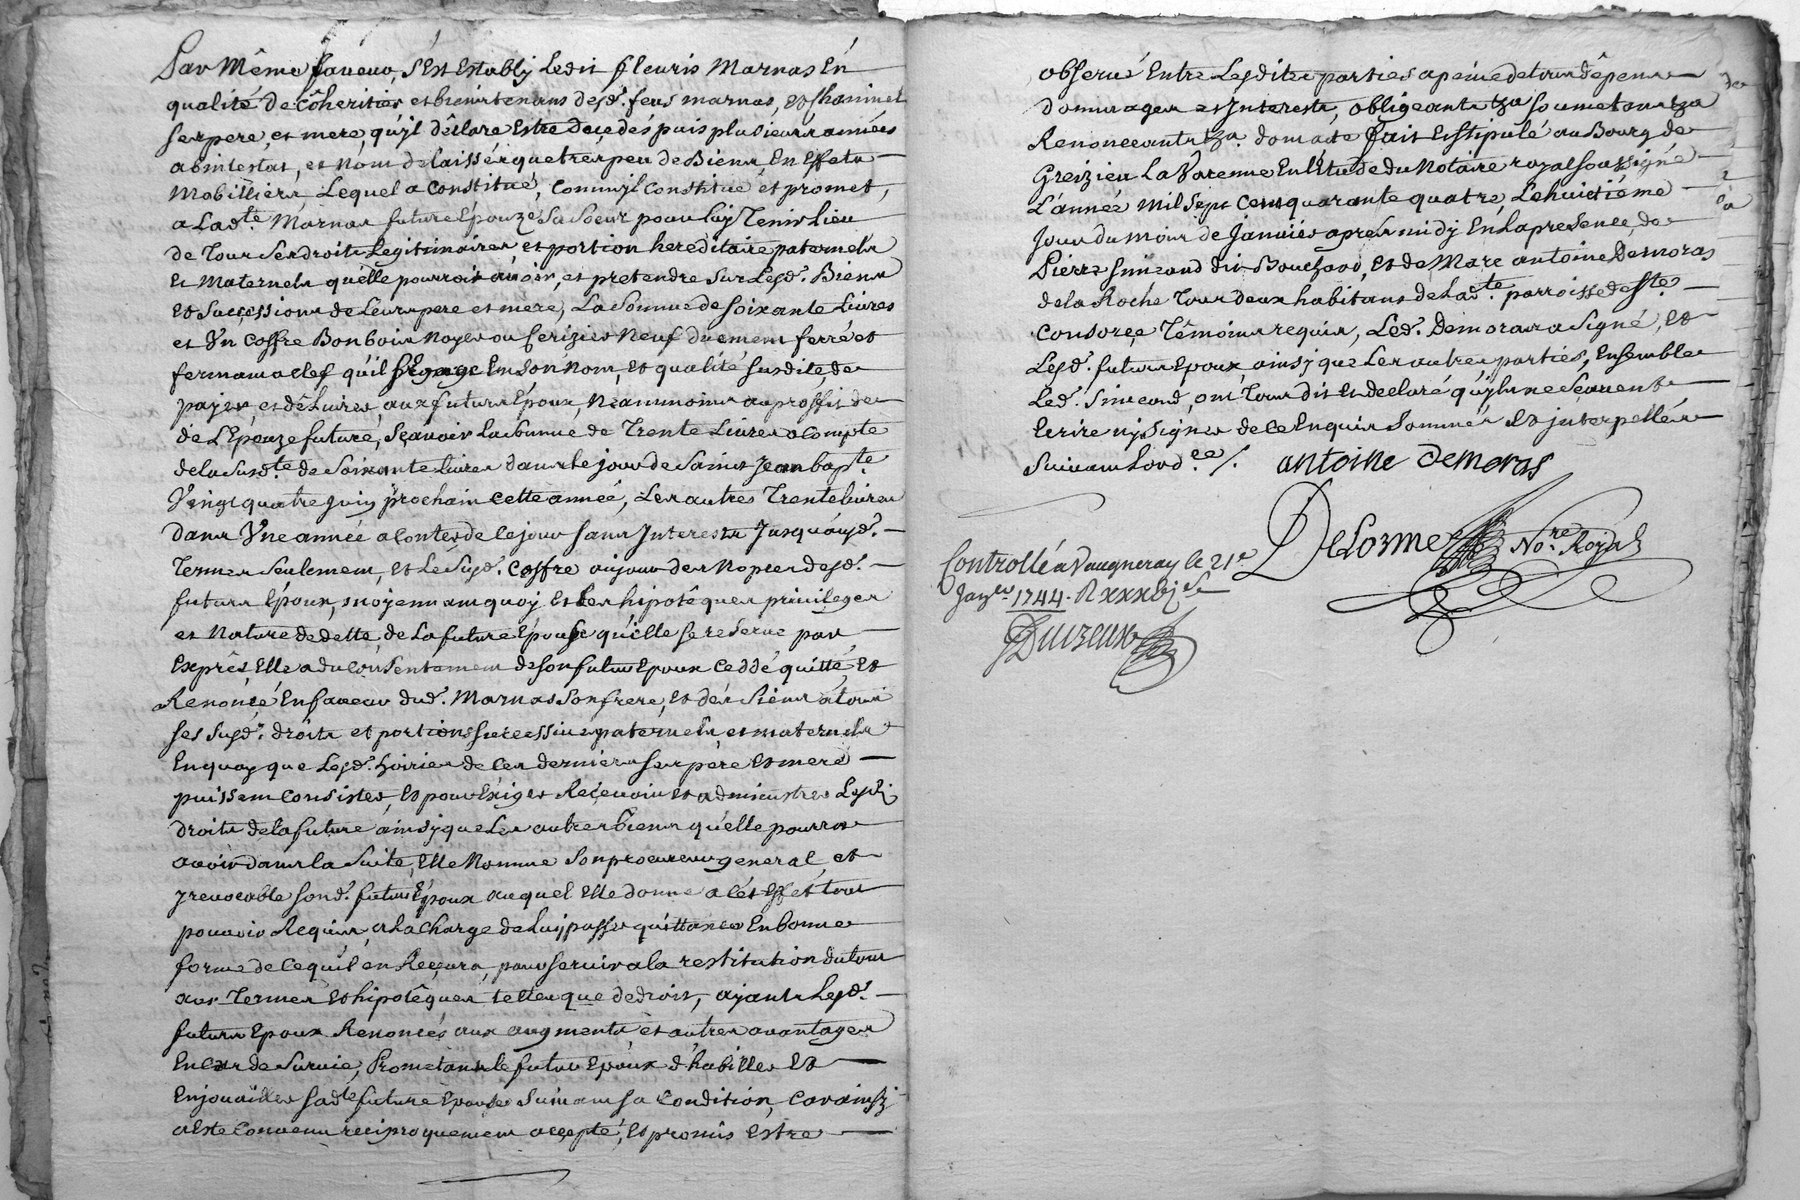 Par Même faveur, s'Est Estably Ledit fleuris Marnas En
qualité de côheritier et biem tenans desd. feus marnas, et
ses pere, et mere, qu'yl dêclare Estre deçedés puis plusieurs années
abintestat, et N'om delaissér que tres peu de Biens En Effets
Mobilliers, Lequel a Constitué, Comm'yl Constitué et promet,
a Lad.te Marnas future Epouze Sa Soeur pour Luy Tenir Lieu
de Tous Ses droits Legitimaires, et portion hereditaire paternels
Et Maternels qu'elle pourroit avoir, et pretendre sur Lesd. Biens
Et Successions de Leurs pere et mere, La Somme de soixante Livres
et Vn Coffre Bon bois Noyer ou Cerizier Neuf duement ferré et
fermant a Clef qu'il S'Egage En Son Nom, et qualité susdite, de
payer, et dêlivrer, aux futurs Epoux, Neanmoins au proffit de
de L'Epouze future, Sçavoir La Somme de Trente Livres a Compte
de la Susd.te de Soixante Livres dans le jour de Saint Jean bap.te
Vingt quatre Juin prochain Cette année, Les autres Trente Livres
dans Vne année a Conter de Ce jour sans Jnterests Jusqu'auxd.
Termes Seulement, et Le Susd. Coffre au jour des Nopces desd.
futurs Epoux, Moyennant quoy et Les hipotêques privileges
et Nature de dette, de La future Epouse qu'elle se reserve par
Exprês, Elle a du Consentement de son futur Epoux Ceddé quitté, et
Renoncé En faveur dud. Marnas Son frere, et des Siens a tous
ses Susd. drôits et portions Sucessives paternels, et maternels
En quoy que Lesd. hoiries de Ces derniers ses pere Et mere
puissent Consister, Et pour Exiger Reçevoir et administrer Lesd.
droits de la future ainsy que Les autres biens qu'elle pourra
avoir dans la Suite, Elle Nomme Son procureur general et
yrevocable Sond. futur Epoux auquel Elle donne a Cet Effet tout
pouvoir Requis, a La Charge de Luy passer quittance En bonne
forme de Ce qu'il en Reçevra, pour servir a la restitution du tout
aux Termes Et hipotêques telles que de droit, ayants Lesd.
futurs Epoux Renoncés aux augments et autres avantages
En Cas de Survie, Prometant le futur Epoux d'habiller Et
Enjouailler sad.te future Epouse Suivant sa Condition, Car ainsy
a Este Convenu reciproquement accepté, Et promis Estre
observé Entre Lesdites parties a peine de tous dêpens
dommages et Jnterests, obligeants &a soumetants &a
Renonceants &a. dom acte fait Et Stipulé au Bourg de
Greizieu La Varenne En L'Etude du Notaire royal soussigné
L'année Mil Sept Cent quarante quatre, Le huictiéme
Jour du Mois de Janvier apres midy En La presence, de
Pierre Simeand dit Bouchard, et de Marc antoine Demoras
de la Roche Tous deux habitans de Lad.te parroisse de S.te
Consorçe Têmoins requis, Led. Demoras a Signé, Et
Lesd. futurs Epoux, ainsy que Les autres parties, Ensemble
Led. Simeand, ont Tous dit Et declaré qu'yls ne Sçavent
Ecrire ny Signer de Ce Enquis Sommés Et jnterpellés
Suivant Lord.ce /. antoine Demoras
DeLorme No.re Royal
Controllé a Vaugneray le 21e
Janver 1744. R xxxvj s